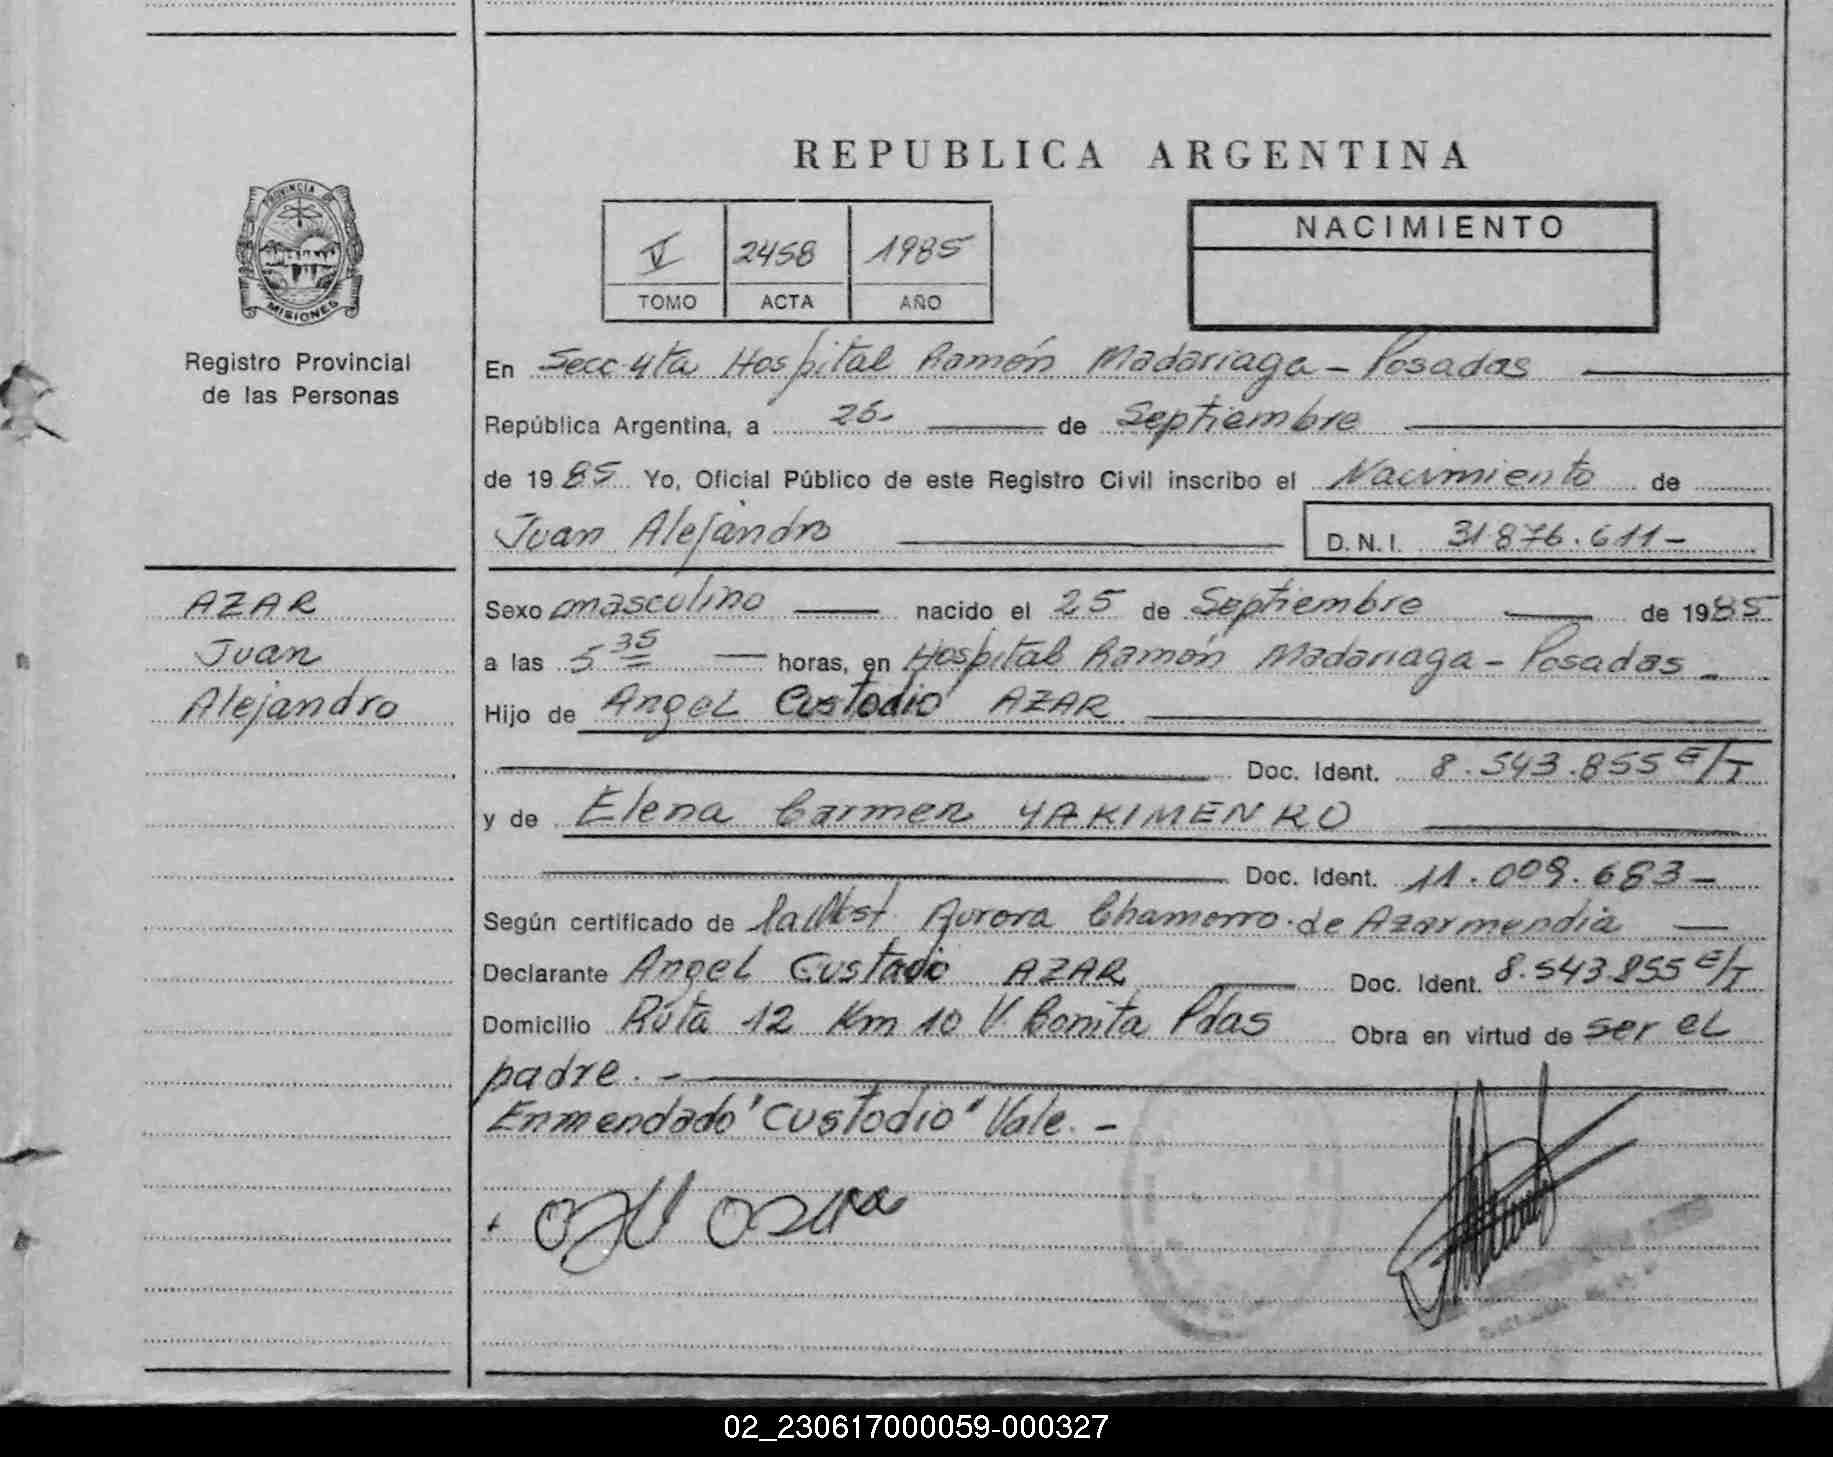 PROVINCIA DE
MISIONES
Registro Provincial
de las Personas
AZAR
Juan
Alejandro
REPUBLICA ARGENTINA
V 2458 1985
TOMO ACTA AÑO
NACIMIENTO
En Secc 4ta Hospital Ramón Madariaga - Posadas
República Argentina, a 26- de Septiembre
de 1985 Yo, Oficial Público de este Registro Civil inscribo el Nacimiento de
Juan Alejandro D.N.I. 31.876.611-
Sexo masculino nacido el 25 de Septiembre de 1985
a las 5 35 horas, en Hospital Ramón Madariaga - Posadas -
Hijo de Angel Custodio AZAR
Doc. Ident. 8.543.855 E/T
y de Elena Carmen YAKIMENKO
Doc. Ident. 11.009.683-
Según certificado de la Obst. Aurora Chamorro de Azarmendia
Declarante Angel Custodio AZAR Doc. Ident. 8.543.855 E/T
Domicilio Ruta 12 Km 10 V. Bonita Pdas Obra en virtud de ser el
padre. -
Enmendado "Custodio" Vale. -
02_230617000059-000327